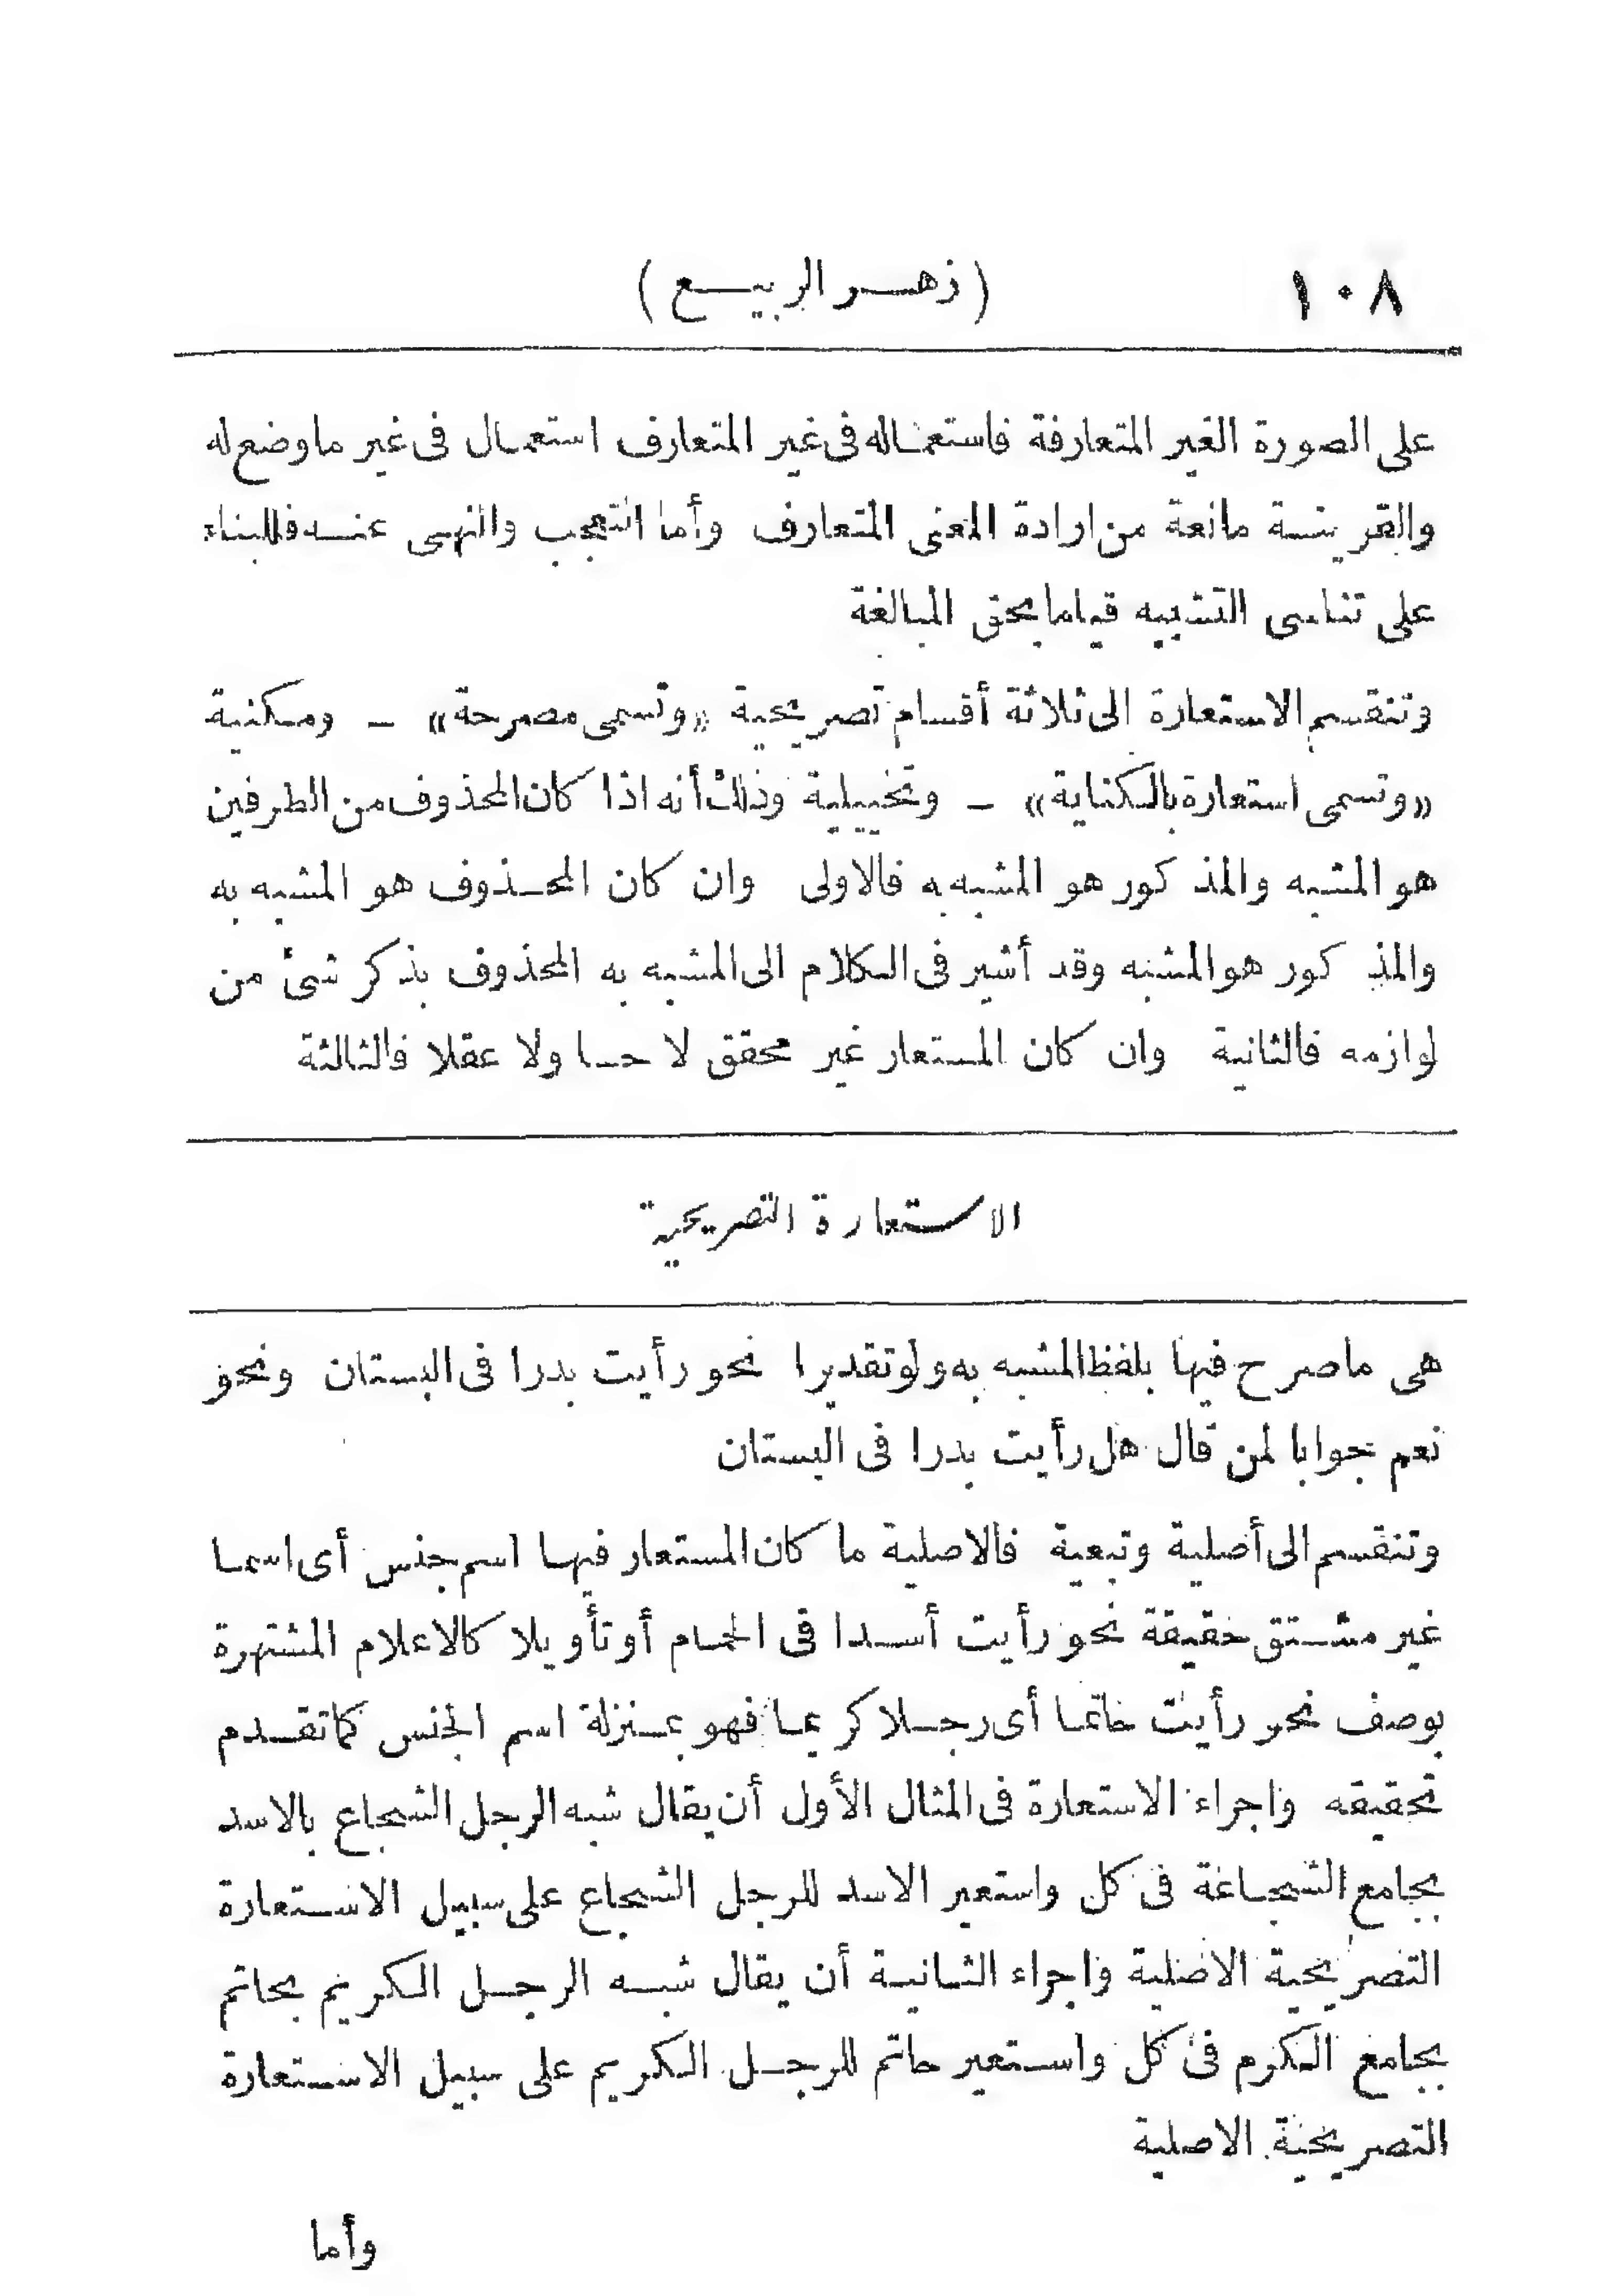 ١٠٨ (زهر الربيع)
على الصورة الغير المتعارفة فاستعماله فى غير المتعارف استعمال فى غير ما وضع له
والقرينة مانعة من ارادة المعنى المتعارف وأما التعجب والنهى عنه فللبناء
على تناسى التشبيه قياما بحق المبالغة
وتنقسم الاستعارة الى ثلاثة أقسام تصريحية «وتسمى مصرحة» - ومكنية
«وتسمى استعارة بالكناية» - وتخييلية وذلك أنه اذا كان المحذوف من الطرفين
هو المشبه والمذكور هو المشبه به فالاولى وان كان المحذوف هو المشبه به
والمذكور هو المشبه وقد أشير فى الكلام الى المشبه به المحذوف بذكر شئ من
لوازمه فالثانية وان كان المستعار غير محقق لا حسا ولا عقلا فالثالثة
الاستعارة التصريحية
هى ماصرح فيها بلفظ المشبه به ولو تقديرا نحو رأيت بدرا فى البستان ونحو
نعم جوابا لمن قال هل رأيت بدرا فى البستان
وتنقسم الى أصلية وتبعية فالاصلية ما كان المستعار فيها اسم جنس أى اسما
غير مشتق حقيقة نحو رأيت أسدا فى الحمام أو تأويلا كالاعلام المشتهرة
بوصف نحو رأيت حاتما أى رجلا كريما فهو بمنزلة اسم الجنس كما تقدم
تحقيقه واجراء الاستعارة فى المثال الأول أن يقال شبه الرجل الشجاع بالاسد
بجامع الشجاعة فى كل واستعير الاسد للرجل الشجاع على سبيل الاستعارة
التصريحية الاصلية واجراء الثانية أن يقال شبه الرجل الكريم بحاتم
بجامع الكرم فى كل واستعير حاتم للرجل الكريم على سبيل الاستعارة
التصريحية الاصلية
وأما